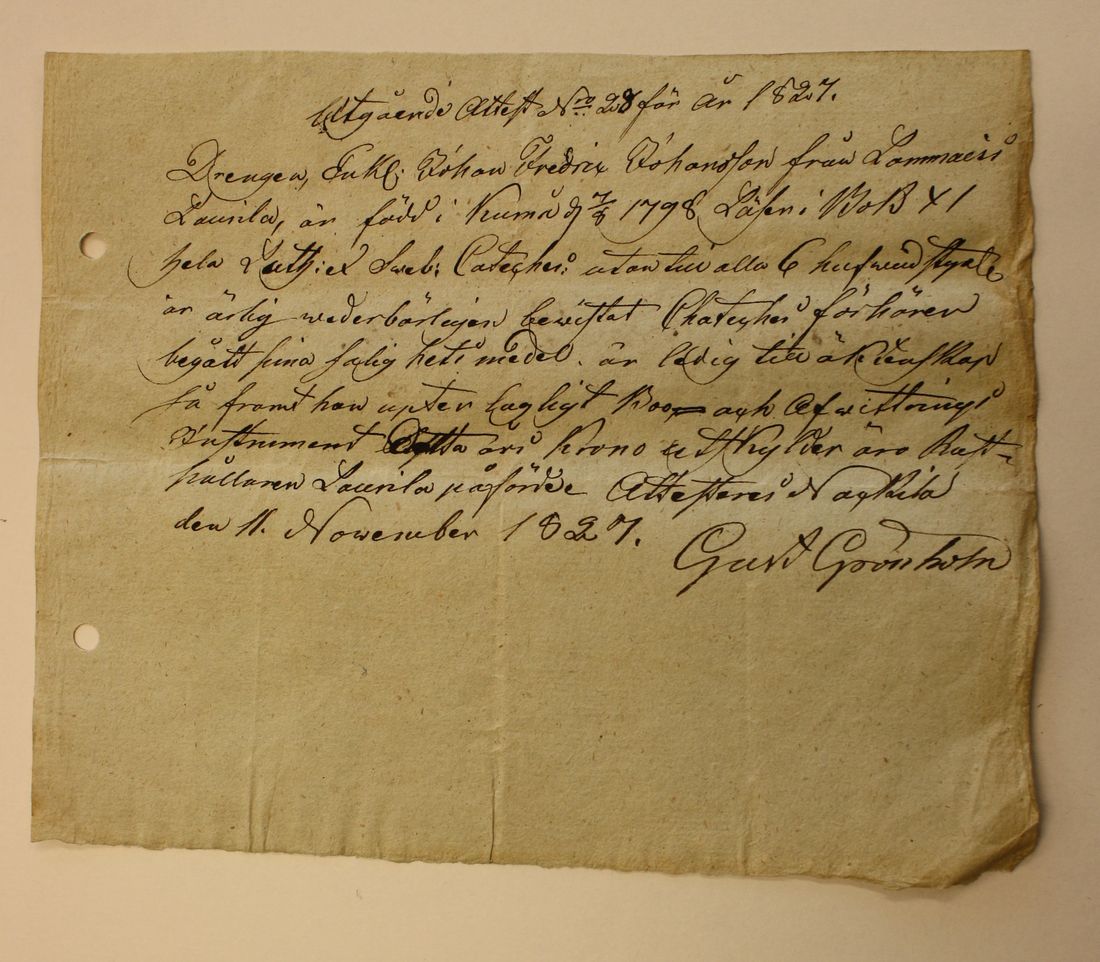 Utgående Attest No 28 för år 1827.
Drengen, Enkl: Johan Fredrix Johansson från Lammais
Laurila, är född i Kumå d 7/8 1798 Läser i Bok X 1
hela Luth: ex Sweb: Cateches: utan till alla 6 hufwudstycke
är ärlig wederbörligen bewistat Chateches förhören
begått sina salighets medel. är ledig till äktenskap
så framt han upter lagligt Boo och Afwittrings
Instrument Detta års Krono utskylder äro Rust-
hållaren Laurila påförde Attesteras Nackila
den 11. November 1827.
Gust Grönholm